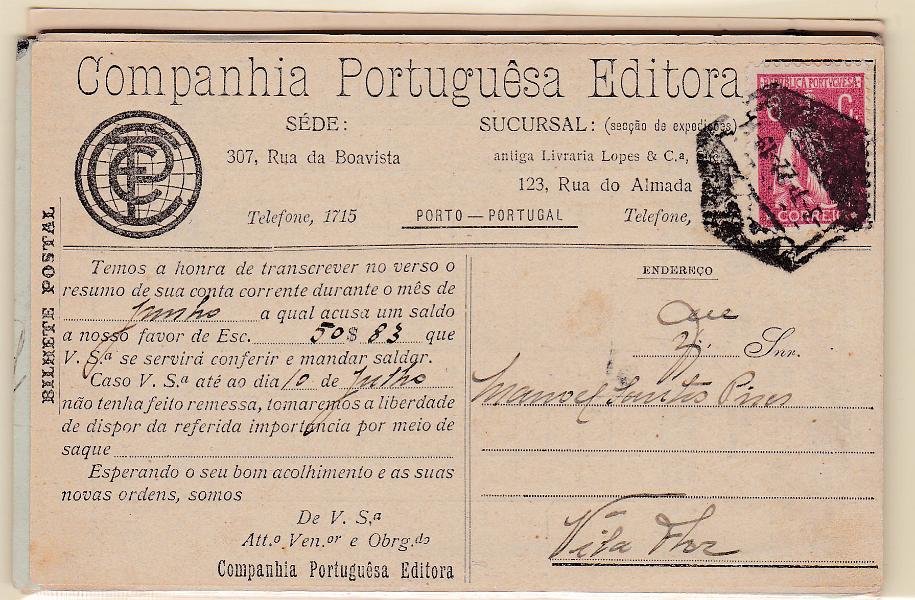 Companhia Portuguêsa Editora
SÉDE:
307, Rua da Boavista
Telefone, 1715
SUCURSAL: (secção de expedições)
antiga Livraria Lopes & C.ª,
123, Rua do Almada
Telefone,
PORTO — PORTUGAL
REPUBLICA PORTUGUESA
C.
CORREIO
BILHETE POSTAL
Temos a honra de transcrever no verso o
resumo de sua conta corrente durante o mês de
Junho a qual acusa um saldo
a nosso favor de Esc. 50$83 que
V. S.ª se servirá conferir e mandar saldar.
Caso V. S.ª até ao dia 10 de Julho
não tenha feito remessa, tomaremos a liberdade
de dispor da referida importância por meio de
saque
Esperando o seu bom acolhimento e as suas
novas ordens, somos
De V. S.ª
Att.º Ven.or e Obrg.do
Companhia Portuguêsa Editora
ENDEREÇO
Snr.
Manoel Santos Pires
Vila Flor